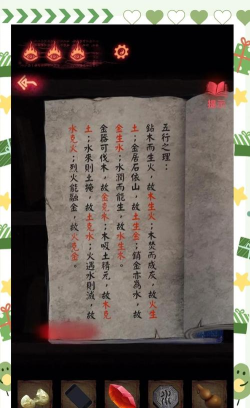 五行之理：
鉆木而生火，故木生火；木焚而成灰，故火生
土；金居石依山，故土生金；銷金亦為水，故
金生水；水潤而能生，故水生木。
金器可伐木，故金克木；木吸土精元，故木克
土；水來則土掩，故土克水；火遇水則滅，故
水克火；烈火能融金，故火克金。